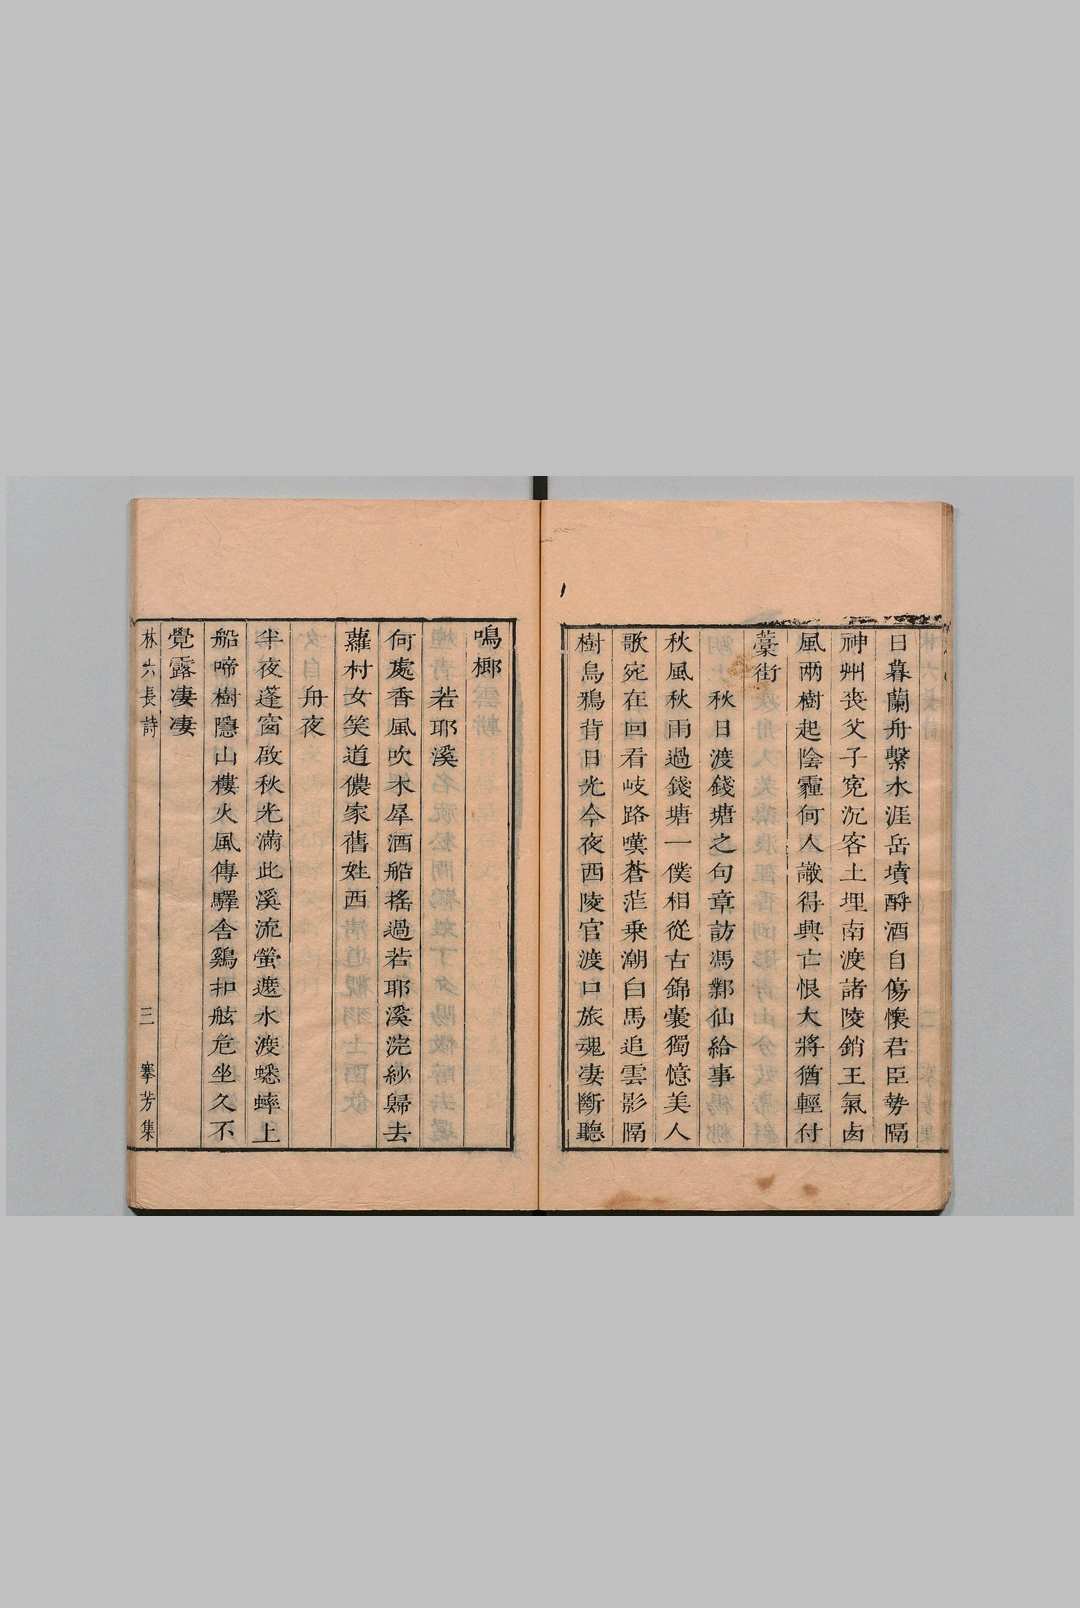 日暮蘭舟繫水涯岳墳酹酒自傷懷君臣勢隔
神州喪父子冤沉客土埋南渡諸陵銷王氣鹵
風兩樹起陰霾何人識得興亡恨大將猶輕付
藁街
秋日渡錢塘之句章訪馮鄴仙給事
秋風秋雨過錢塘一僕相從古錦囊獨憶美人
歌宛在回看岐路嘆蒼茫乗潮白馬追雲影隔
樹烏鴉背日光今夜西陵官渡口旅魂凄斷聽
鳴榔
若耶溪
何處香風吹木犀酒船搖過若耶溪浣紗歸去
蘿村女笑道儂家舊姓西
舟夜
半夜蓬窗啟秋光滿此溪流螢遮水渡蟋蟀上
船啼樹隱山樓火風傳驛舍鷄扣舷危坐久不
覺露凄凄
林六長詩 三 搴芳集